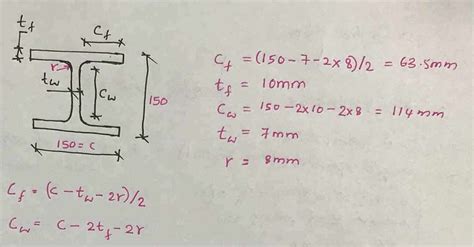 t_f
C_f
r
t_w
C_w
150
150 = c
C_f = (150-7-2×8)/2 = 63.5mm
t_f = 10mm
C_w = 150-2×10-2×8 = 114mm
t_w = 7mm
r = 8mm
C_f = (c-t_w-2r)/2
C_w = c-2t_f-2r